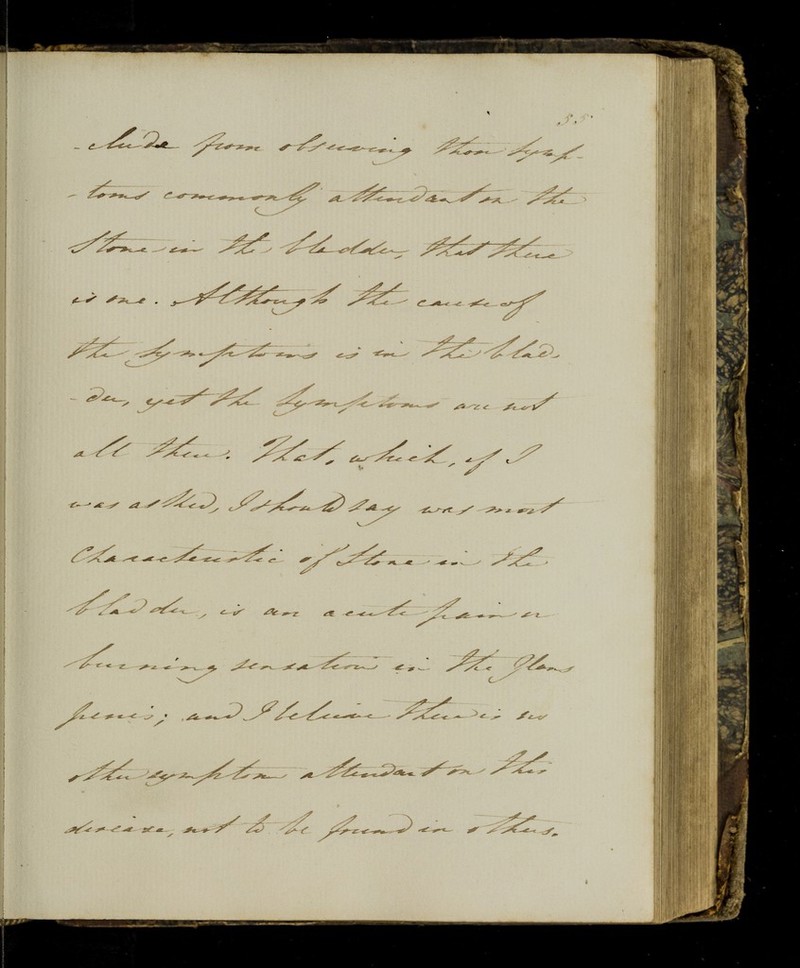 55
-clude from observing those symp-
-toms commonly attendant on the
Stone in the bladder, that there
is one. Although the cause of
the symptoms is in the blad-
-der, yet the symptoms are not
all there. That, which, if I
was asked, I should say was most
Characteristic of Stone in the
bladder, is an acute pain or
burning sensation in the Glans
penis; and I believe there is no
other symptom attendant on this
disease, not to be found in others.